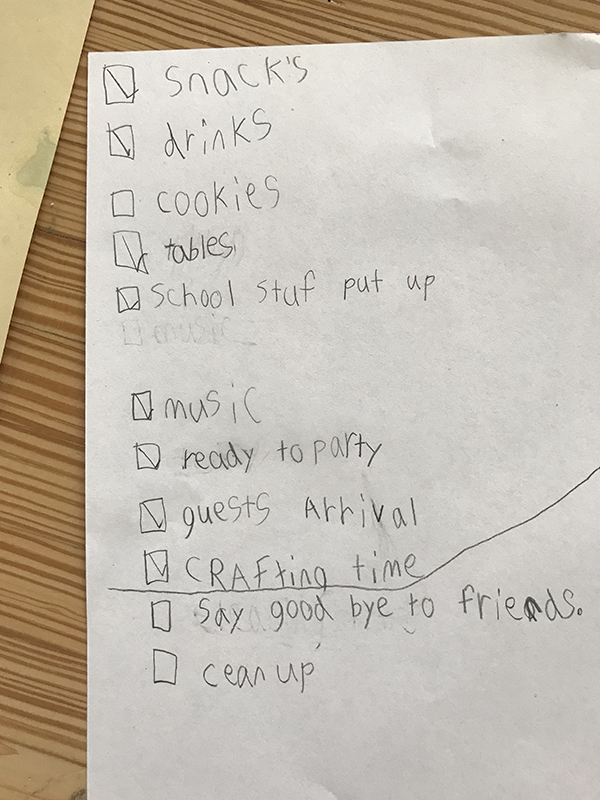 snack's
drinks
cookies
tables
School stuf put up
music
music
ready to party
guests Arrival
CRAFting time
Say good bye to friends.
cean up